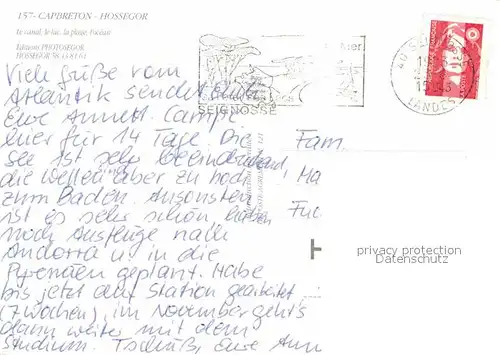 157- CAPBRETON - HOSSEGOR
Le canal, le lac, la plage, l'océan
Editions PHOTOSEGOR
HOSSEGOR 58.43.81.61
SEIGNOSSE
mer
LANDES
Viele Grüße vom
Atlantik sendet Euch
Eure Annett. Campe
hier für 14 Tage. Die
See ist sehr beeindruckend,
die Wellen aber zu hoch
zum Baden. Ansonsten
ist es sehr schön, haben
noch Ausflüge nach
Andorra u. in die
Pyrenäen geplant. Habe
bis jetzt auf Station gearbeitet
(7 Wochen), im November geht's
dann weiter mit dem
Studium. Tschüß, Eure Ann
Fam.
Ha
privacy protection
Datenschutz